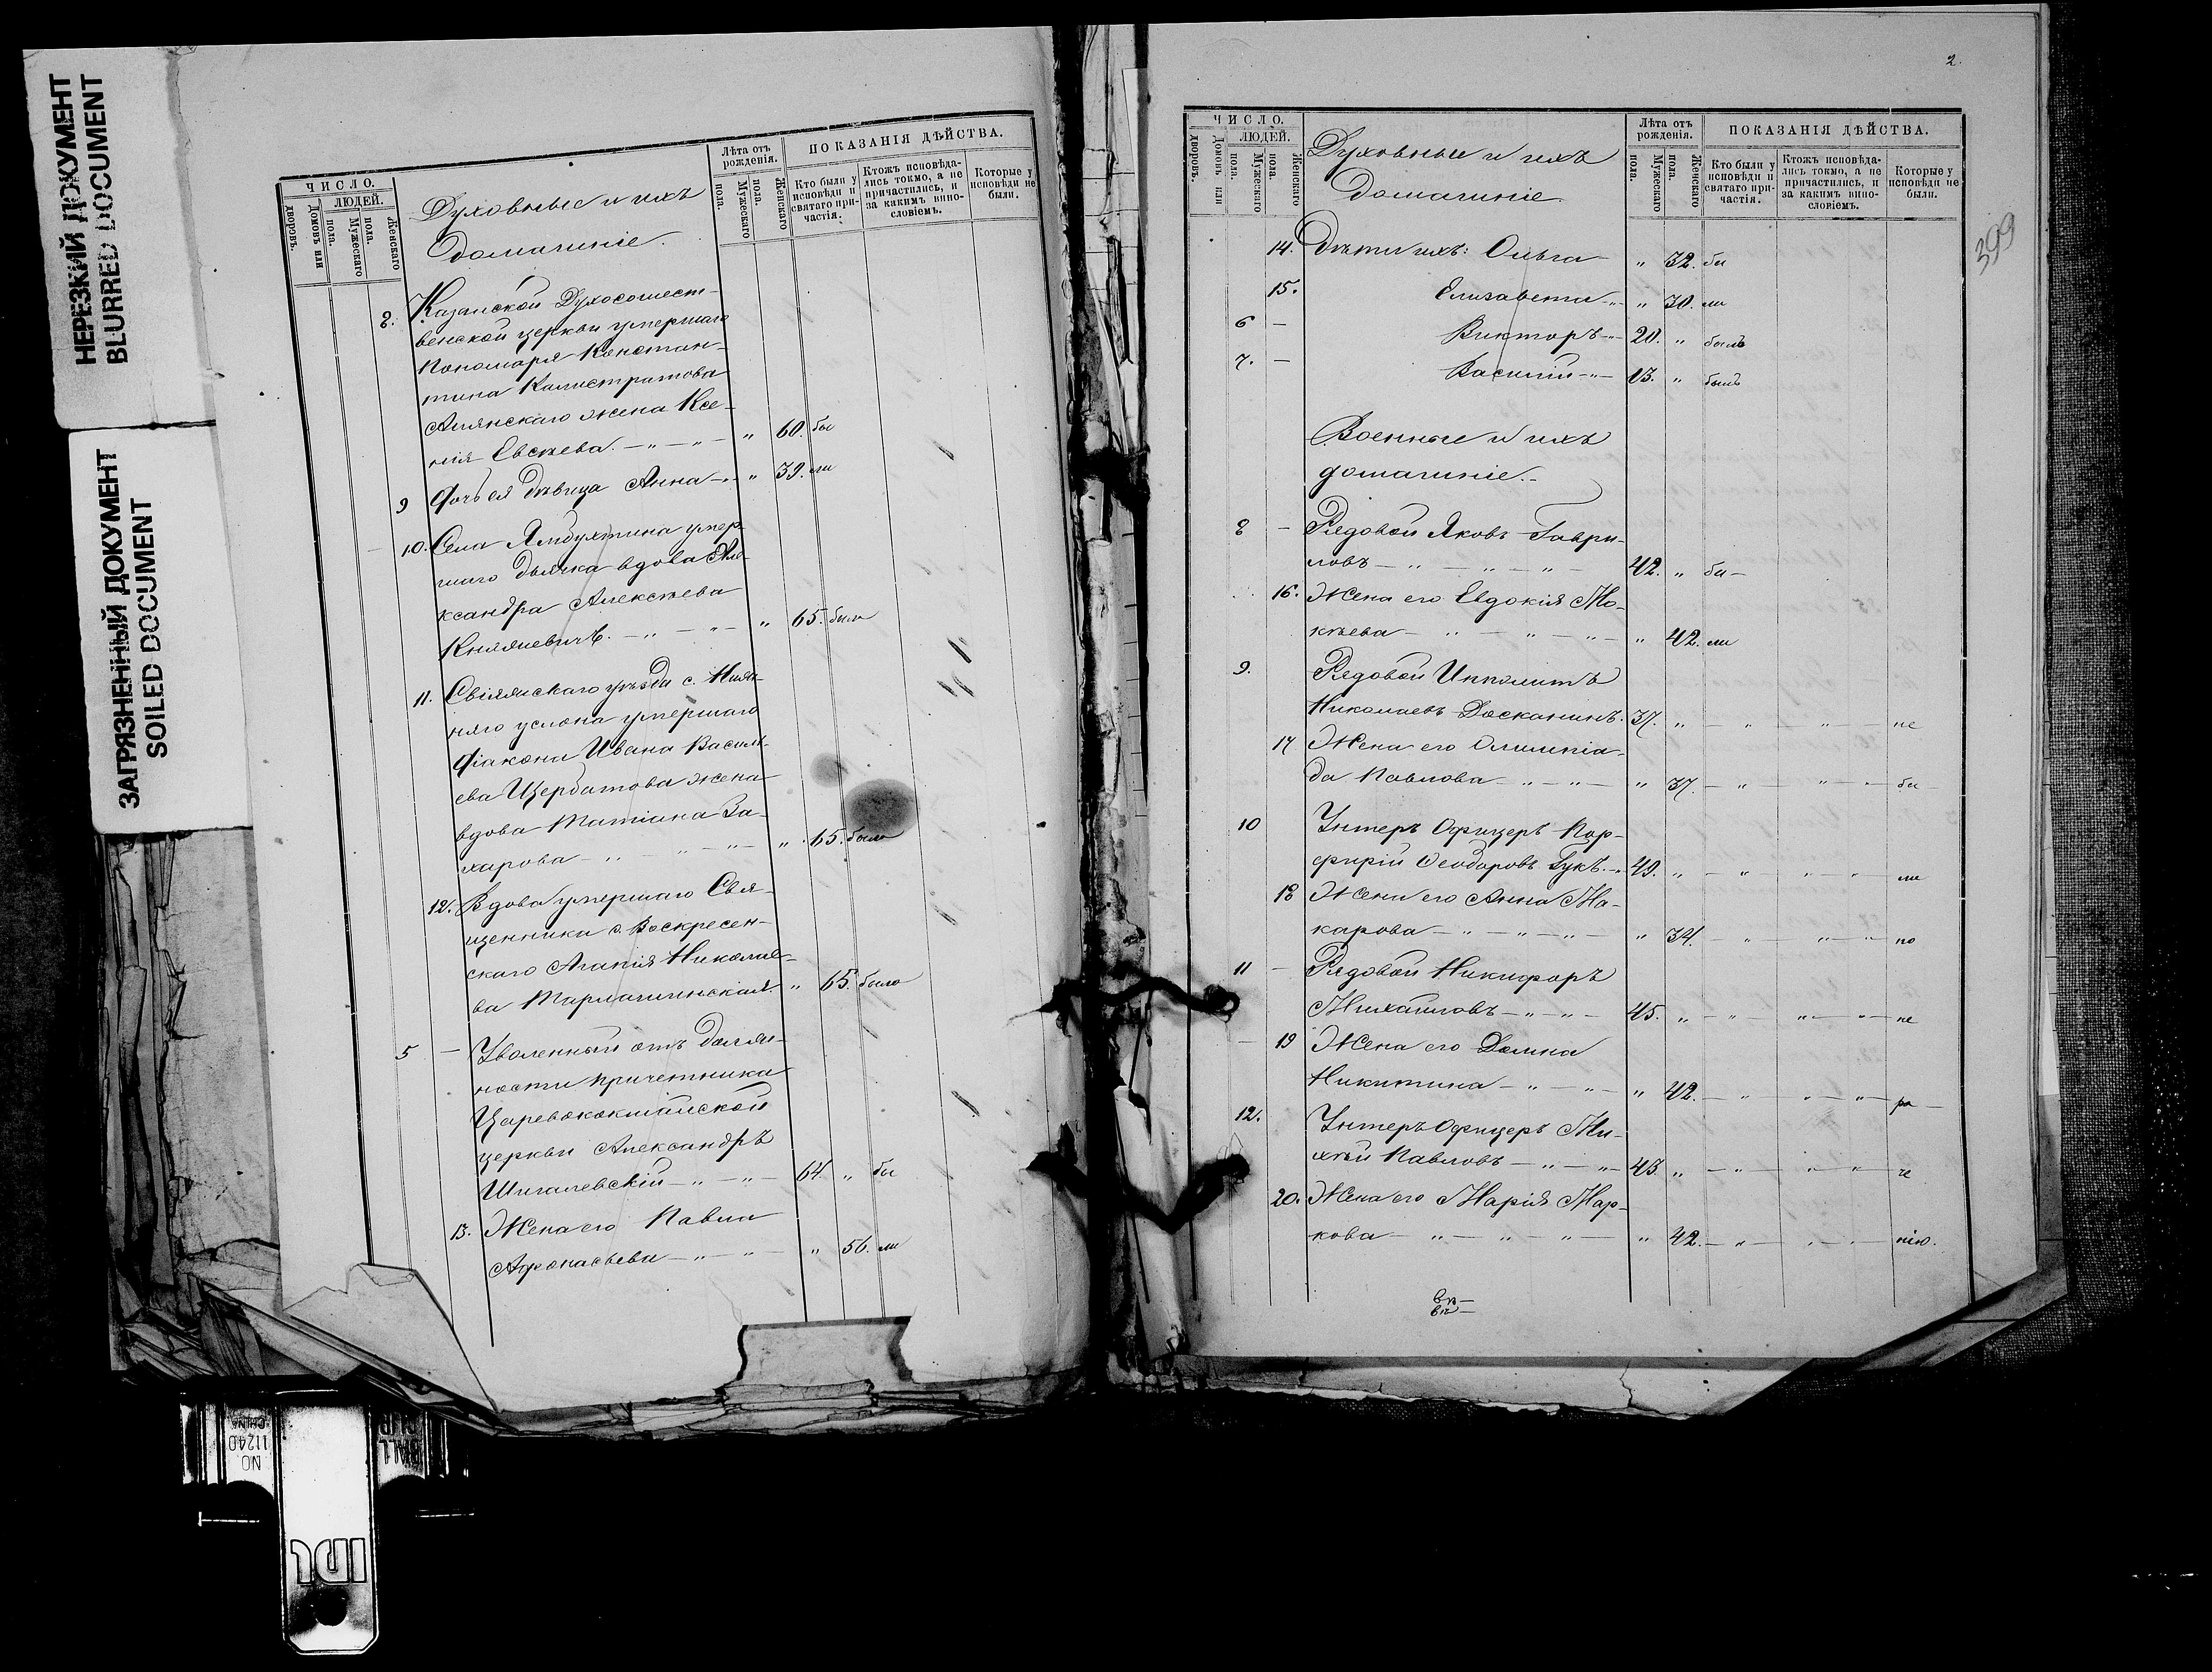 НЕРЕЗКИЙ ДОКУМЕНТ
BLURRED DOCUMENT
ЗАГРЯЗНЕННЫЙ ДОКУМЕНТ
SOILED DOCUMENT
ЧИСЛО.
ЛЮДЕЙ.
Домовъ или дворовъ.
Мужескаго пола.
Женскаго пола.
Духовные и ихъ
домашніе.
Лѣта отъ рожденія.
Мужескаго пола.
Женскаго пола.
ПОКАЗАНІЯ ДѢЙСТВА.
Кто были у исповѣди и святаго причастія.
Ктожъ исповѣдались токмо, а не причастились, и за какимъ винословіемъ.
Которые у исповѣди не были.
8. Казанской Духосошест-
венской церкви умершаго
пономаря Констан-
тина Калистратова
жена Ксе-
нія Евсѣева. " 60. бы
9 Дочь ея дѣвица Анна " 39. ли
10. Села Ямбухтина умер-
шаго дьячка вдова Але-
ксандра Алексѣева
Княжевичъ. " 65. была
11. Свіяжскаго уѣзда с. Ниж-
няго услона умершаго
Діакона Ивана Василь-
ева Щербатова жена
вдова Татіана За-
харова " 65. была
12. Вдова умершаго Свя-
щенника с. Воскресен-
скаго Агапія Николае-
ва " 65. была
5 — Уволенный отъ долж-
ности причетника
Царевококшайской
церкви Александръ
Шигалевскій 64. " бы
13. Жена его Павла
Афонасьева " 56. ли
2.
399
ЧИСЛО.
ЛЮДЕЙ.
Домовъ или дворовъ.
Мужескаго пола.
Женскаго пола.
Духовные и ихъ
домашніе.
Лѣта отъ рожденія.
Мужескаго пола.
Женскаго пола.
ПОКАЗАНІЯ ДѢЙСТВА.
Кто были у исповѣди и святаго причастія.
Ктожъ исповѣдались токмо, а не причастились, и за какимъ винословіемъ.
Которые у исповѣди не были.
14. Дѣти ихъ: Ольга " 32. бы
15. Елизавета " 30. ли
6 — Викторъ 20. " былъ
7. — Василій 13. " былъ
Военные и ихъ
домашніе.
8 — Рядовой Яковъ Гаври-
ловъ 42. " бы
16. Жена его Евдокія Мо-
кѣева " 42. ли
9. Рядовой Ипполитъ
Николаевъ Досканинъ. 37. " не
17 Жена его Олимпіа-
да Павлова " 37. бы
10 Унтеръ Офицеръ Пор-
фирій Ѳеодоровъ Гукъ. 40. " ли
18 Жена его Анна Ма-
карова " 34. по
11 — Рядовой Никифоръ
Михайловъ 45. " не
19 Жена его Домна
Никитина " 42. ра
12. Унтеръ Офицеръ Ми-
хѣй Павловъ 43. " че
20. Жена его Марія Мар-
кова " 42. нію.
NO 1124D
IDC